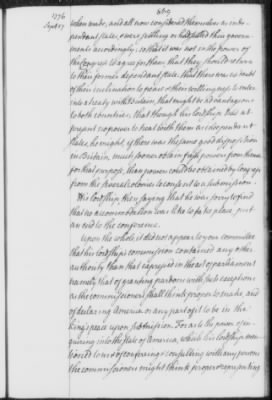 569
1776
Sept. 17
taken made, and all now considered themselves as inde-
pendant states, & were settling or had settled their govern-
ments accordingly; so that it was not in the power of
the Congress to agree for them that they should return
to their former dependant state. that there was no doubt
of their inclination to peace & their willingness to enter
into a treaty with Britain, that might be advantageous
to both countries; that though his lordship has at
present no power to treat with them as independant
states, he might, if there was the same good disposition
in Britain, much sooner obtain fresh powers from thence
for that purpose, than powers could be obtained by Congress
from the several colonies to consent to a submission.
His lordship then saying that he was sorry to find
that no accommodation was like to take place, put
an end to the conference.
Upon the whole it did not appear to your committee
that his lordship's commission contained any other
authority than that expressed in the act of parliament
namely that of granting pardons with such exceptions
as the commissioners shall think proper to make, and
of declaring America or any part of it to be in the
king's peace upon submission. For as to the power of en-
quiring into the state of America, which his lordship men-
tioned to us & of conferring & consulting with any persons
the commissioners might think proper & representing